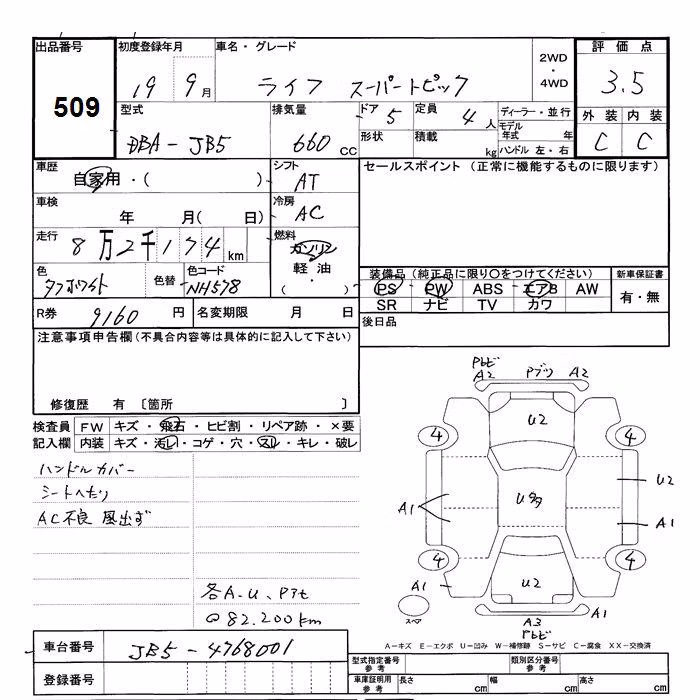 出品番号 初度登録年月 車名・グレード 2WD・4WD 評価点
509 19 9月 ライフ スーパートピック 3.5
型式 排気量 ドア 5 定員 4人 ディーラー・並行 外装 内装
DBA-JB5 660cc 形状 積載 kg モデル年式 年 C C
ハンドル 左・右
車歴 自家用・( ) シフト AT セールスポイント (正常に機能するものに限ります)
車検 年 月( 日) 冷房 AC
走行 8万2千174km 燃料 ガソリン
軽油
( )
色 色替 色コード NH578 装備品 (純正品に限り○をつけてください) 新車保証書
PS PW ABS エアB AW 有・無
SR ナビ TV カワ
R券 9160円 名変期限 月 日 後日品
注意事項申告欄 (不具合内容等は具体的に記入して下さい)
修復歴 有 〔箇所 〕
検査員 FW キズ・飛石・ヒビ割・リペア跡・×要
記入欄 内装 キズ・汚レ・コゲ・穴・スレ・キレ・破レ
ハンドルカバー
シートヘたり
AC不良 風出ず
各A.U、
@82.200km
A2 A2
U2
4 4
U2
A1 U多
A1
4 4
A1 U2 A1
スペア A3
A-キズ E-エクボ U-凹み W-補修跡 S-サビ C-腐食 XX-交換済
車台番号 JB5-4768001 型式指定番号 参考 類別区分番号 参考
登録番号 車庫証明用 参考 長さ cm 幅 cm 高さ cm